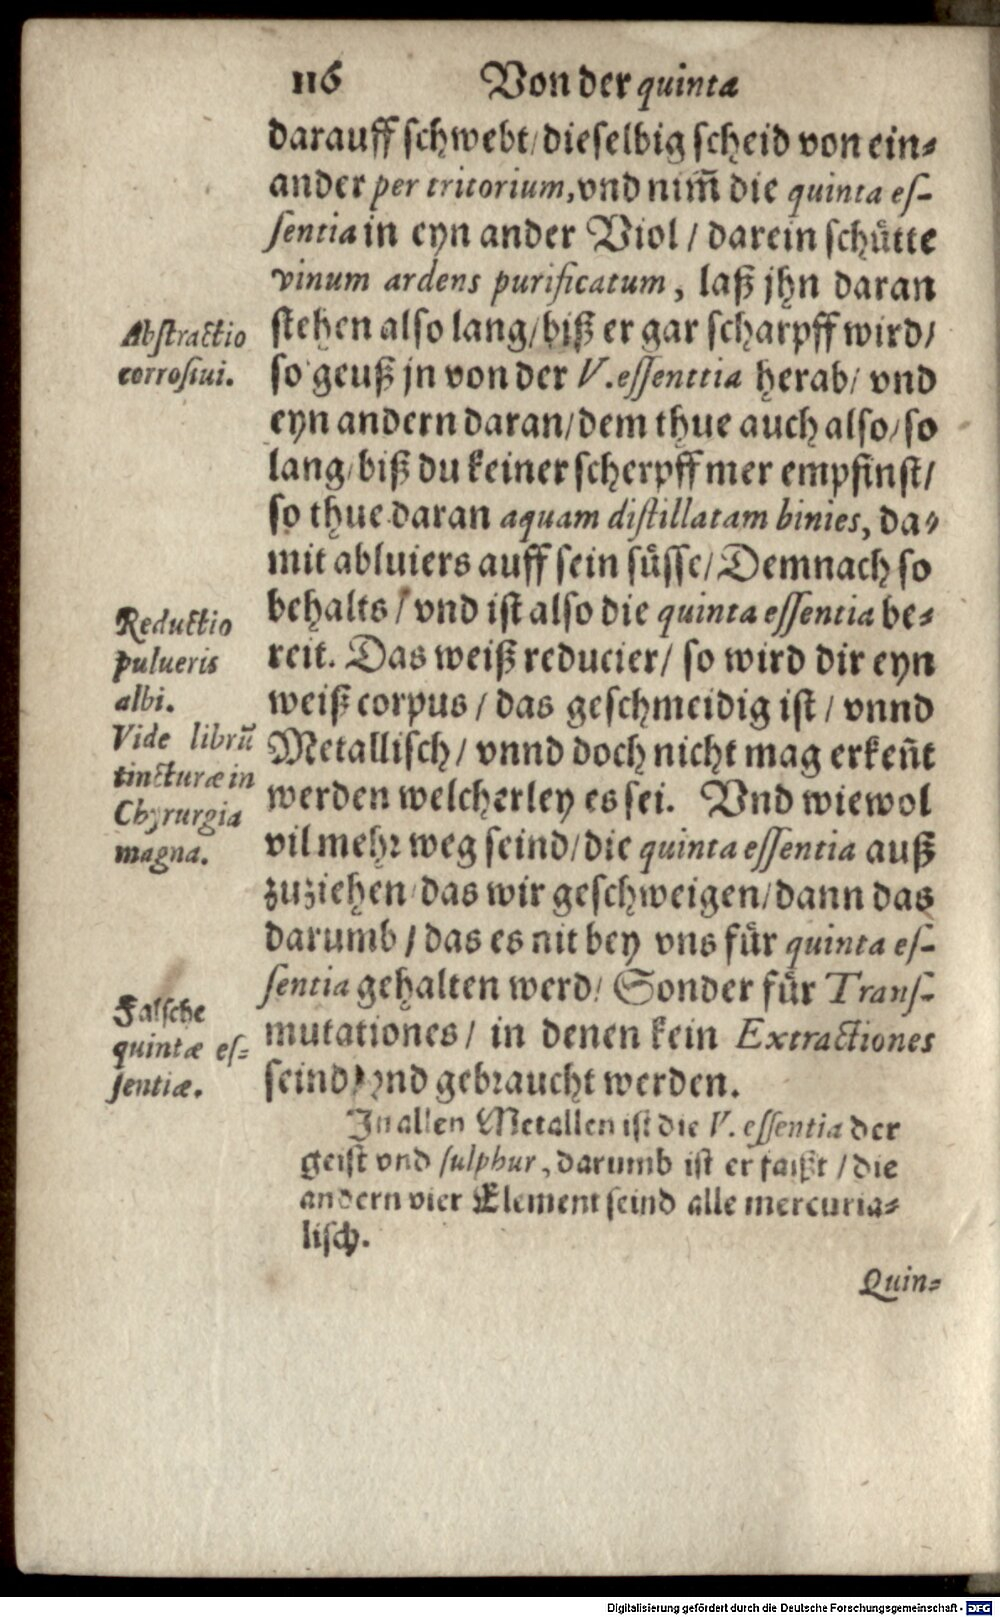 116 Von der quinta
darauff schwebt/dieselbig scheid von ein-
ander per tritorium, vnd nim̄ die quinta es-
sentia in eyn ander Viol / darein schütte
vinum ardens purificatum, laß jhn daran
Abstractio
corrosiui.
stehen also lang/biß er gar scharpff wird/
so geuß jn von der V. essenttia herab/ vnd
eyn andern daran/dem thue auch also/so
lang/biß du keiner scherpff mer empfinst/
so thue daran aquam distillatam binies, da-
mit abluiers auff sein süsse/Demnach so
Reductio
pulueris
albi.
Vide librū
tincturæ in
Chyrurgia
magna.
behalts / vnd ist also die quinta essentia be-
reit. Das weiß reducier/ so wird dir eyn
weiß corpus / das geschmeidig ist / vnnd
Metallisch/ vnnd doch nicht mag erken̄t
werden welcherley es sei. Vnd wiewol
vil mehr weg seind/die quinta essentia auß
zuziehen/das wir geschweigen/dann das
darumb / das es nit bey vns für quinta es-
Falsche
quintæ es-
sentiæ.
sentia gehalten werd/ Sonder für Trans-
mutationes/ in denen kein Extractiones
seind/vnd gebraucht werden.
In allen Metallen ist die V. essentia der
geist vnd sulphur, darumb ist er faißt / die
andern vier Element seind alle mercuria-
lisch.
Quin-
Digitalisierung gefördert durch die Deutsche Forschungsgemeinschaft - DFG